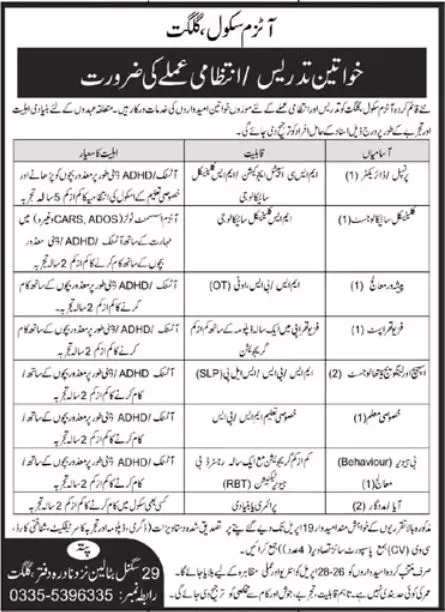 آٹزم سکول، گلگت
خواتین تدریس / انتظامی عملے کی ضرورت
نئے قائم کردہ آٹزم سکول، گلگت کو تدریس اور انتظامی عملے کے لئے موزوں خواتین امیدواروں کی خدمات درکار ہیں۔ متعلقہ عہدوں کے لئے بنیادی اہلیت
اور تجربے کے بطور درج ذیل اسناد کے حامل افراد کو ترجیح دی جائے گی۔
آسامیاں
قابلیت
اہلیت کا معیار
پرنسپل / ڈائریکٹر (1)
ایم ایس سی اسپیشل ایجوکیشن / ایم ایس کلینیکل
سائیکالوجی
آٹسٹک / ADHD ذہنی طور پر معذور بچوں کو پڑھانے اور
خصوصی تعلیم کے اسکول کی انتظامیہ کا کم از کم 5 سالہ تجربہ
کلینیکل سائیکالوجسٹ (1)
ایم ایس کلینیکل سائیکالوجی
آٹزم اسسمنٹ ٹولز (CARS, ADOS وغیرہ) میں
مہارت کے ساتھ آٹسٹک / ADHD / ذہنی معذور
بچوں کے ساتھ کام کرنے کا کم از کم 2 سالہ تجربہ
پیشہ ور معالج (1)
ایم ایس / بی ایس، او ٹی (OT)
آٹسٹک / ADHD / ذہنی طور پر معذور بچوں کے ساتھ کام
کرنے کا کم از کم 2 سالہ تجربہ
فزیو تھراپسٹ (1)
فزیو تھراپی میں ایک سالہ ڈپلومہ کے ساتھ کم از کم
گریجویشن
آٹسٹک / ADHD / ذہنی طور پر معذور بچوں کے ساتھ
کام کرنے کا کم از کم 2 سالہ تجربہ
اسپیچ اور لینگویج پیتھالوجسٹ (2)
ایم ایس / بی ایس / ایس ایل پی (SLP)
آٹسٹک / ADHD ذہنی طور پر معذور بچوں کے ساتھ /
کام کرنے کا کم از کم 2 سالہ تجربہ
خصوصی معلم (1)
خصوصی تعلیم ایم ایس / بی ایس
آٹسٹک / ADHD ذہنی طور پر معذور بچوں کے ساتھ /
کام کرنے کا کم از کم 2 سالہ تجربہ
بی ہیویر (Behaviour)
معالج (1)
کم از کم گریجویشن مع ایک سالہ رجسٹرڈ بی
ہیویر ٹیکنیشن (RBT)
آٹسٹک / ADHD ذہنی طور پر معذور بچوں کے ساتھ /
کام کرنے کا کم از کم 2 سالہ تجربہ
آیا / مددگار (2)
پرائمری یا بنیادی
کسی بھی سکول میں کام کا کم از کم 2 سالہ تجربہ
مذکورہ بالا تقرریوں کے خواہش مند امیدوار 19 اپریل تک دیے گئے پتے پر تصدیق شدہ دستاویزات (ڈگری، ڈپلومہ اور تجربہ کا سرٹیفکیٹ، شناختی کارڈ،
سی وی (CV) بمع پاسپورٹ سائز تصاویر (4 عدد) جمع کرائیں۔
صرف منتخب کردہ امیدواروں کو 26-28 اپریل کو انٹرویو اور عملی مظاہرہ کے لیے بلایا جائے گا۔
عمر کی کوئی حد نہیں ہے، تاہم قابلیت، تجربے، جوش اور جذبے کو ترجیح دی جائے گی۔
پتہ
29 سگنل بٹالین نزد نادرہ دفتر، گلگت
رابطہ نمبر: 0335-5396335